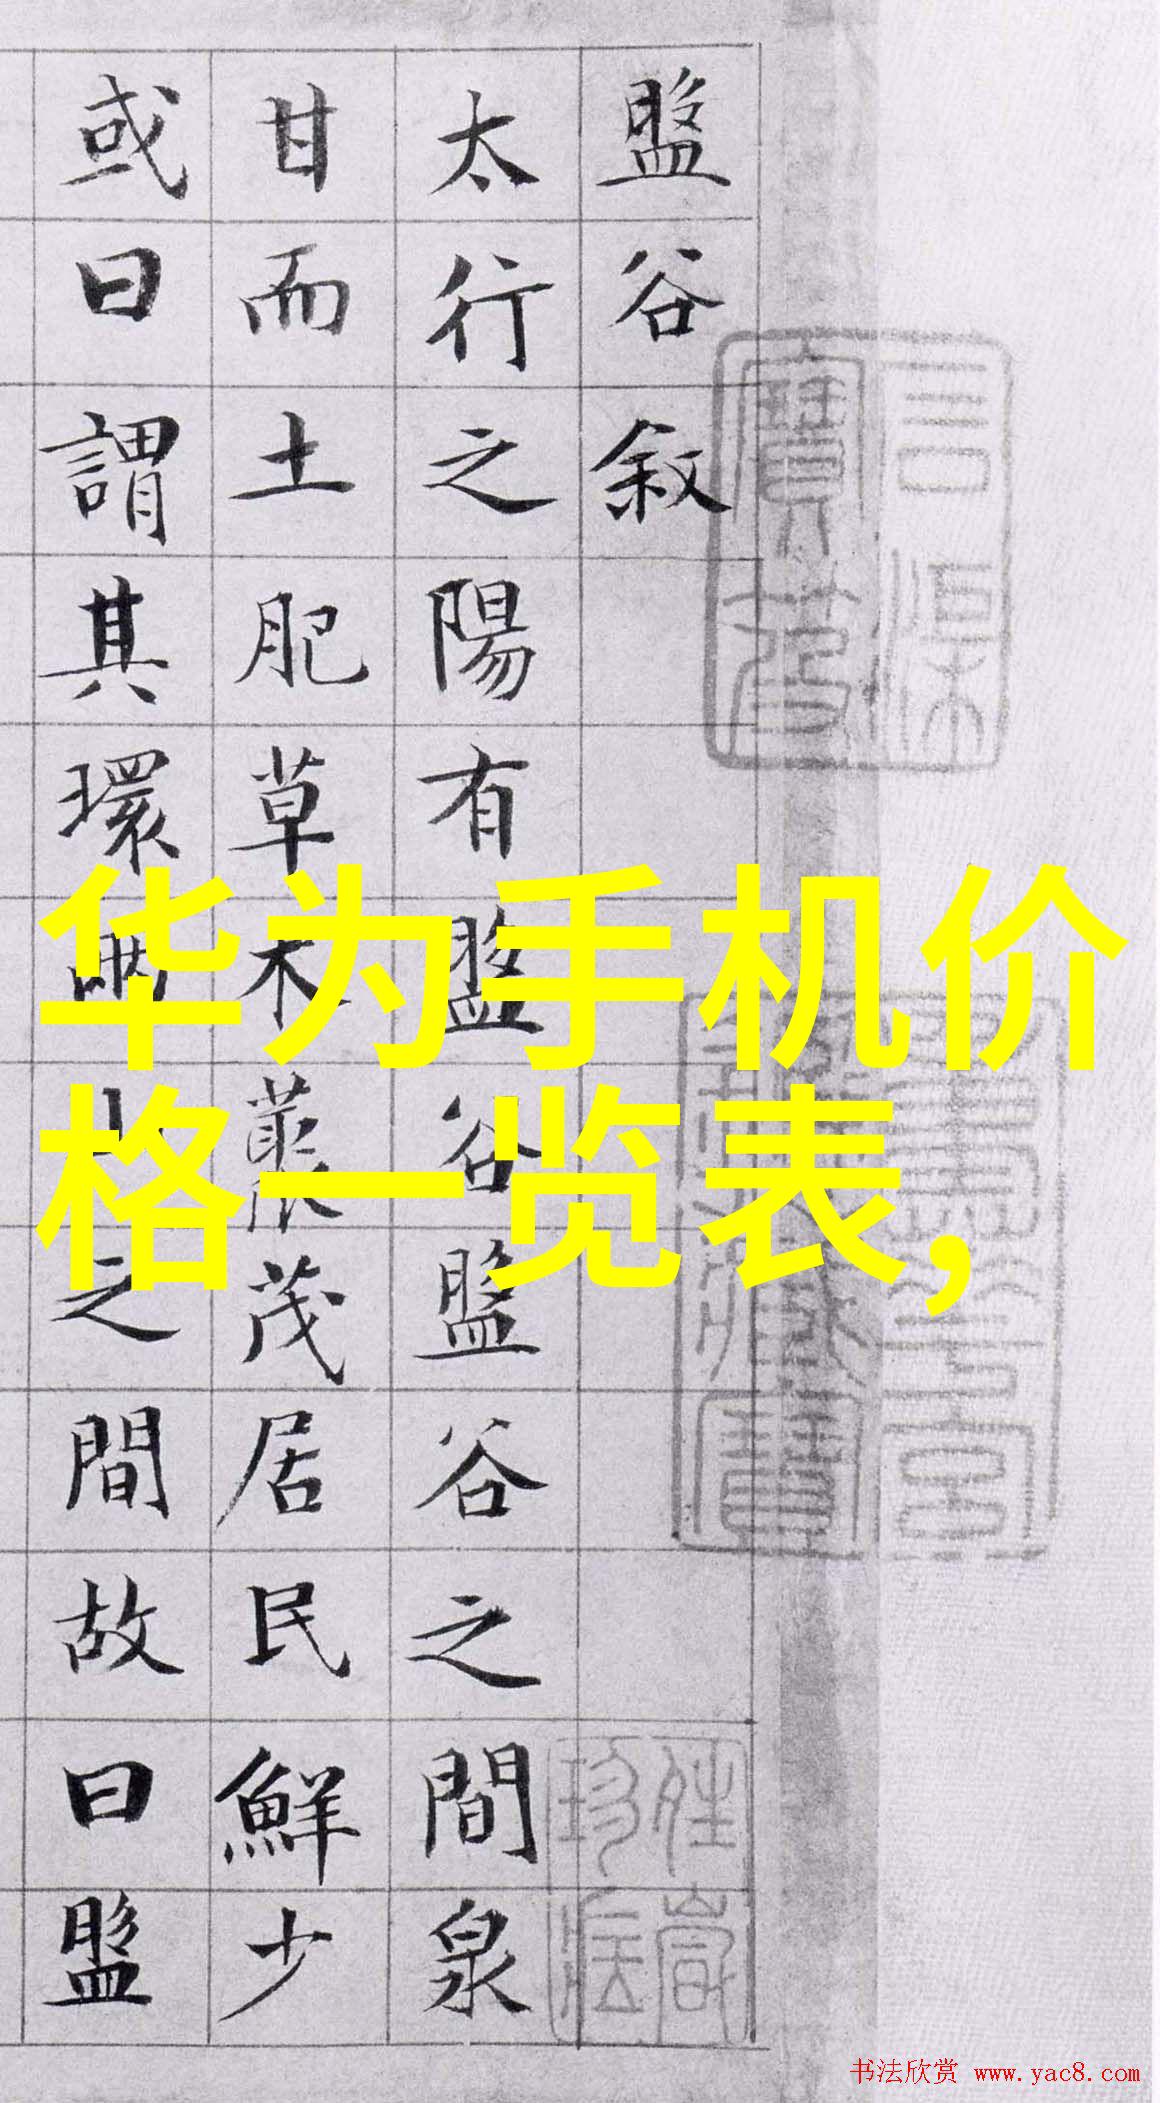 盤谷敘
太行之陽有盤谷盤谷之間泉
甘而土肥草木藂茂居民鮮少
或曰謂其環兩山之間故曰盤
华为手机价
格一览表,
书法欣赏 www.yac8.com